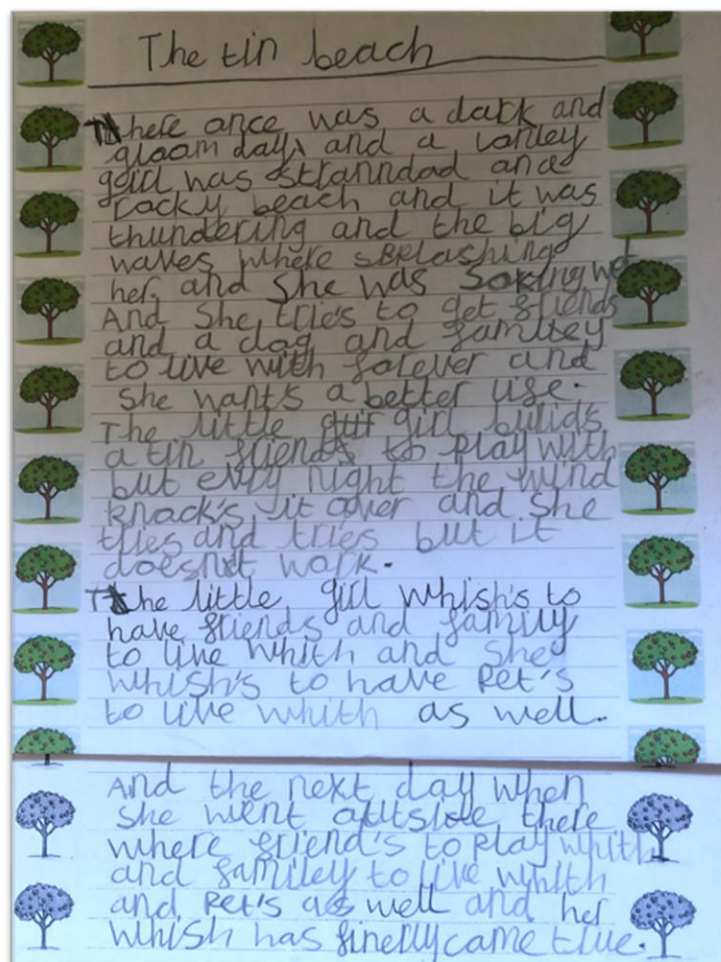 The tin beach
There once was a dark and
gloom day and a lonley
girl was stranndad on a
rocky beach and it was
thundering and the big
waves where splashing
her, and she was Soking wet
And She trie's to get friends
and a dog and familey
to live with forever and
she want's a better life.
The little girl bulid's
a tin friends to play with
but evry night the wind
knock's it over and She
tries and tries but it
doesn't work.
The little girl whish's to
have friends and family
to live whith and she
whish's to have Pet's
to live whith as well.
And the next day when
she went outside there
where friend's to play whith
and familey to live whith
and Pet's as well and her
whish has finelly came true.